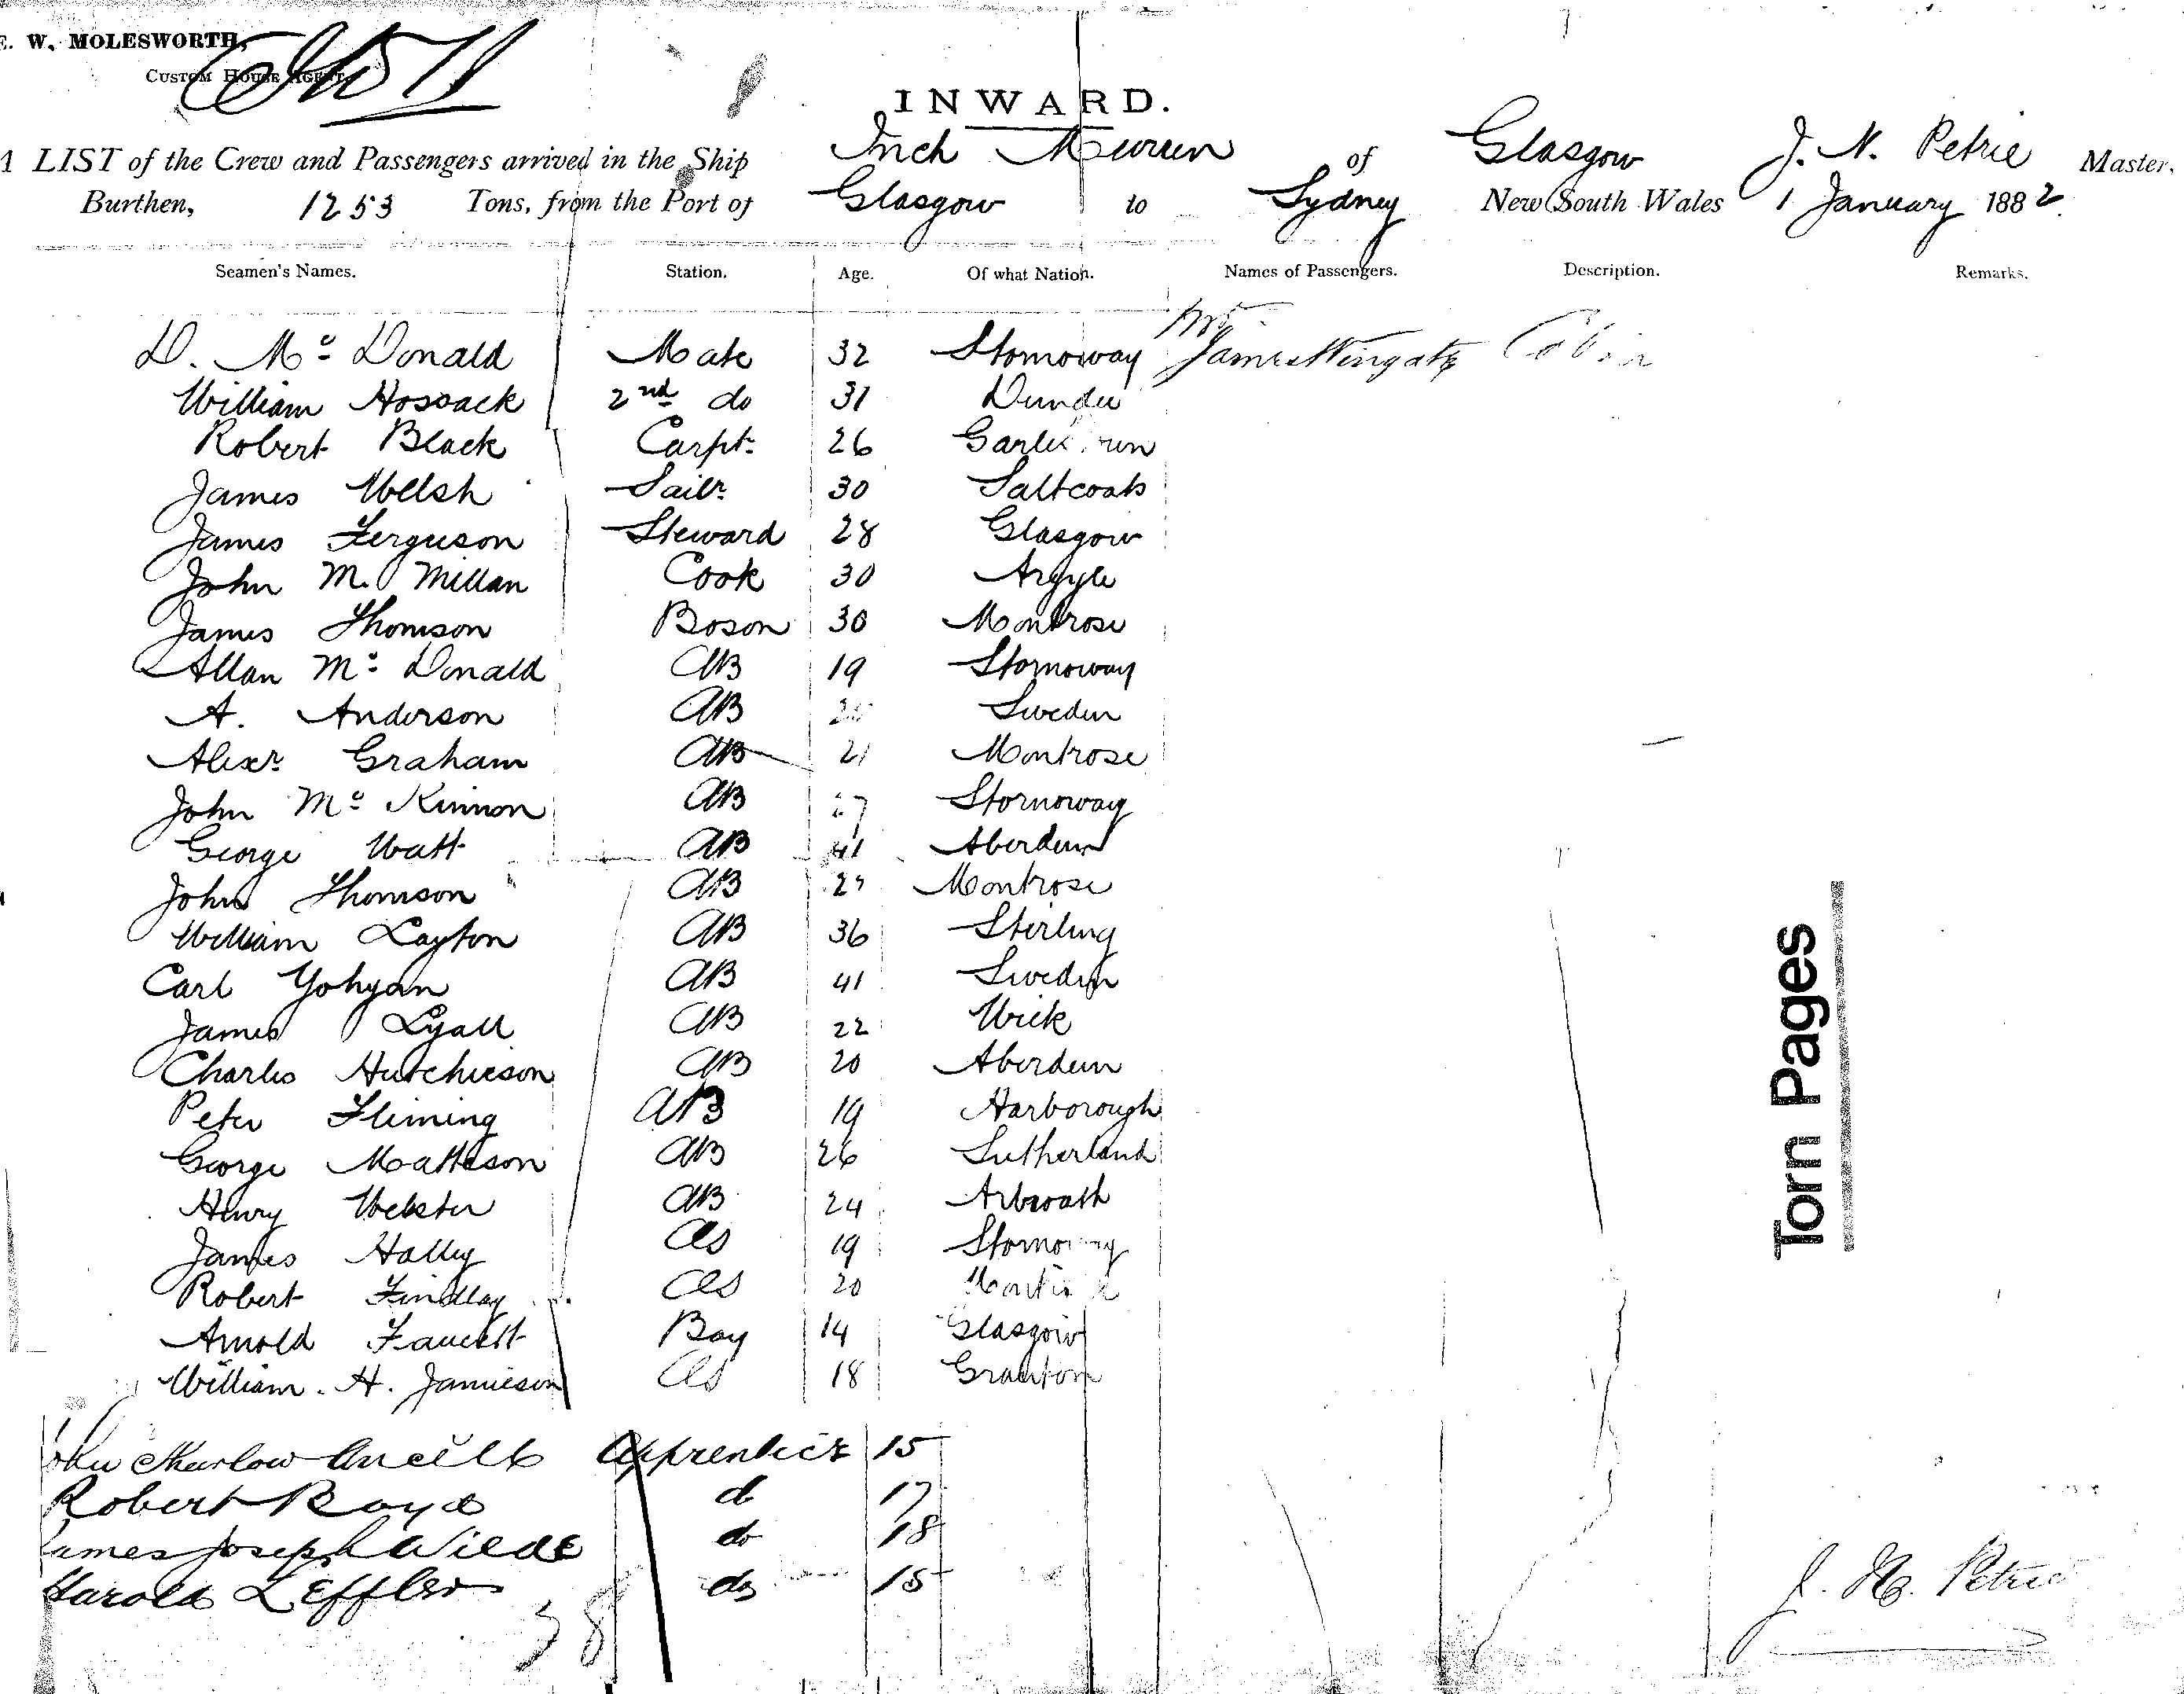 E. W. MOLESWORTH,
CUSTOM HOUSE AGENT.
INWARD.
A LIST of the Crew and Passengers arrived in the Ship Inch Murren of Glasgow J. N. Petrie Master,
Burthen, 1253 Tons, from the Port of Glasgow to Sydney New South Wales 1 January 1882
Seamen's Names. Station. Age. Of what Nation. Names of Passengers. Description. Remarks.
D. Mc Donald Mate 32 Stornoway Mr James Wingate Cabin
William Hossack 2nd do 31 Dundee
Robert Black Carpt. 26
James Welsh Sailr 30 Saltcoats
James Ferguson Steward 28 Glasgow
John M. Millan Cook 30 Argyle
James Thomson Boson 30 Montrose
Allan Mc Donald AB 19 Stornoway
A. Anderson AB Sweden
Alexr Graham AB 21 Montrose
John Mc Kinnon AB Stornoway
George Watt AB 41 Aberdeen
John Thomson AB Montrose
William Layton AB 36 Stirling
Carl Yohgan AB 41 Sweden
James Lyall AB 22 Wick
Charles Hutchieson AB 20 Aberdeen
Peter Fleming AB 19 Harborough
George Matteson AB 26 Sutherland
Henry Webster AB 24 Arbroath
James Halley OS 19 Stornoway
Robert Findlay OS 20
Arnold Faucett Boy 14 Glasgow
William. H. Jamieson OS 18 Granton
John Marlow Apprentice 15
Robert Boyd do 17
James Joseph Wilde do 18
Harold Leffler do 15
38
J. N. Petrie
Torn Pages